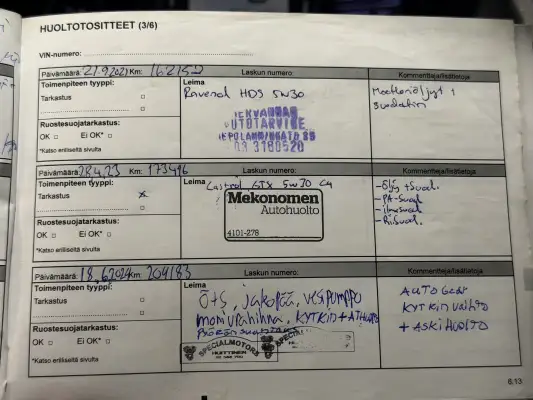 HUOLTOTOSITTEET (3/6)
VIN-numero:
Päivämäärä: 21.9.2021 Km: 162152 Laskun numero: Kommentteja/lisätietoja
Toimenpiteen tyyppi: Leima
Tarkastus Ravenol HDS 5W30 Moottoriöljyt
Suodatin
Ruostesuojatarkastus: AUTOTARVIKE
OK Ei OK*
*Katso erilliseltä sivulta 03 3180520
Päivämäärä: 28.4.23 Km: 173416 Laskun numero: Kommentteja/lisätietoja
Toimenpiteen tyyppi: Leima Castrol GTX 5W30 C4
Tarkastus x Mekonomen -Öljy+Suod.
Autohuolto -PA-Suod
-ilmasuod
-Ri.Suod.
Ruostesuojatarkastus:
OK Ei OK* 4101-278
*Katso erilliseltä sivulta
Päivämäärä: 18.6.2024 Km: 204183 Laskun numero: Kommentteja/lisätietoja
Toimenpiteen tyyppi: Leima
Tarkastus Ö+S, jakopää, vesipumppu AUTO GEAR
moniurahihna, KYTKIN + KYTKIN VAIHTO
+ ASKI HUOLTO
Ruostesuojatarkastus:
OK Ei OK* SPECIALMOTORS
HUITTINEN
*Katso erilliseltä sivulta
6.13